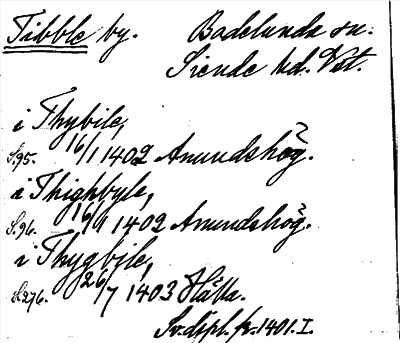 Tibble by. Badelunda sn.
Siende hd. Vst.
i Thybile,
S.95. 16/1 1402 Anundshög.
i Thighbyle,
S.96. 16/1 1402 Anundshög.
i Thygbile,
S.276. 26/7 1403 Hälla.
Sv.dipl. fr. 1401. I.